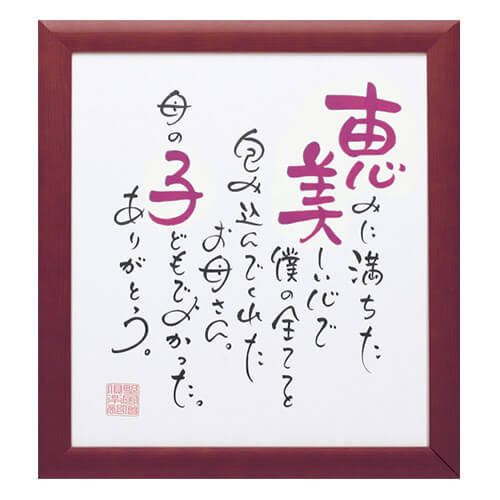 恵みに満ちた
美しい心で
僕の全てを
包み込んでくれた
お母さん。
母の子どもでよかった。
ありがとう。